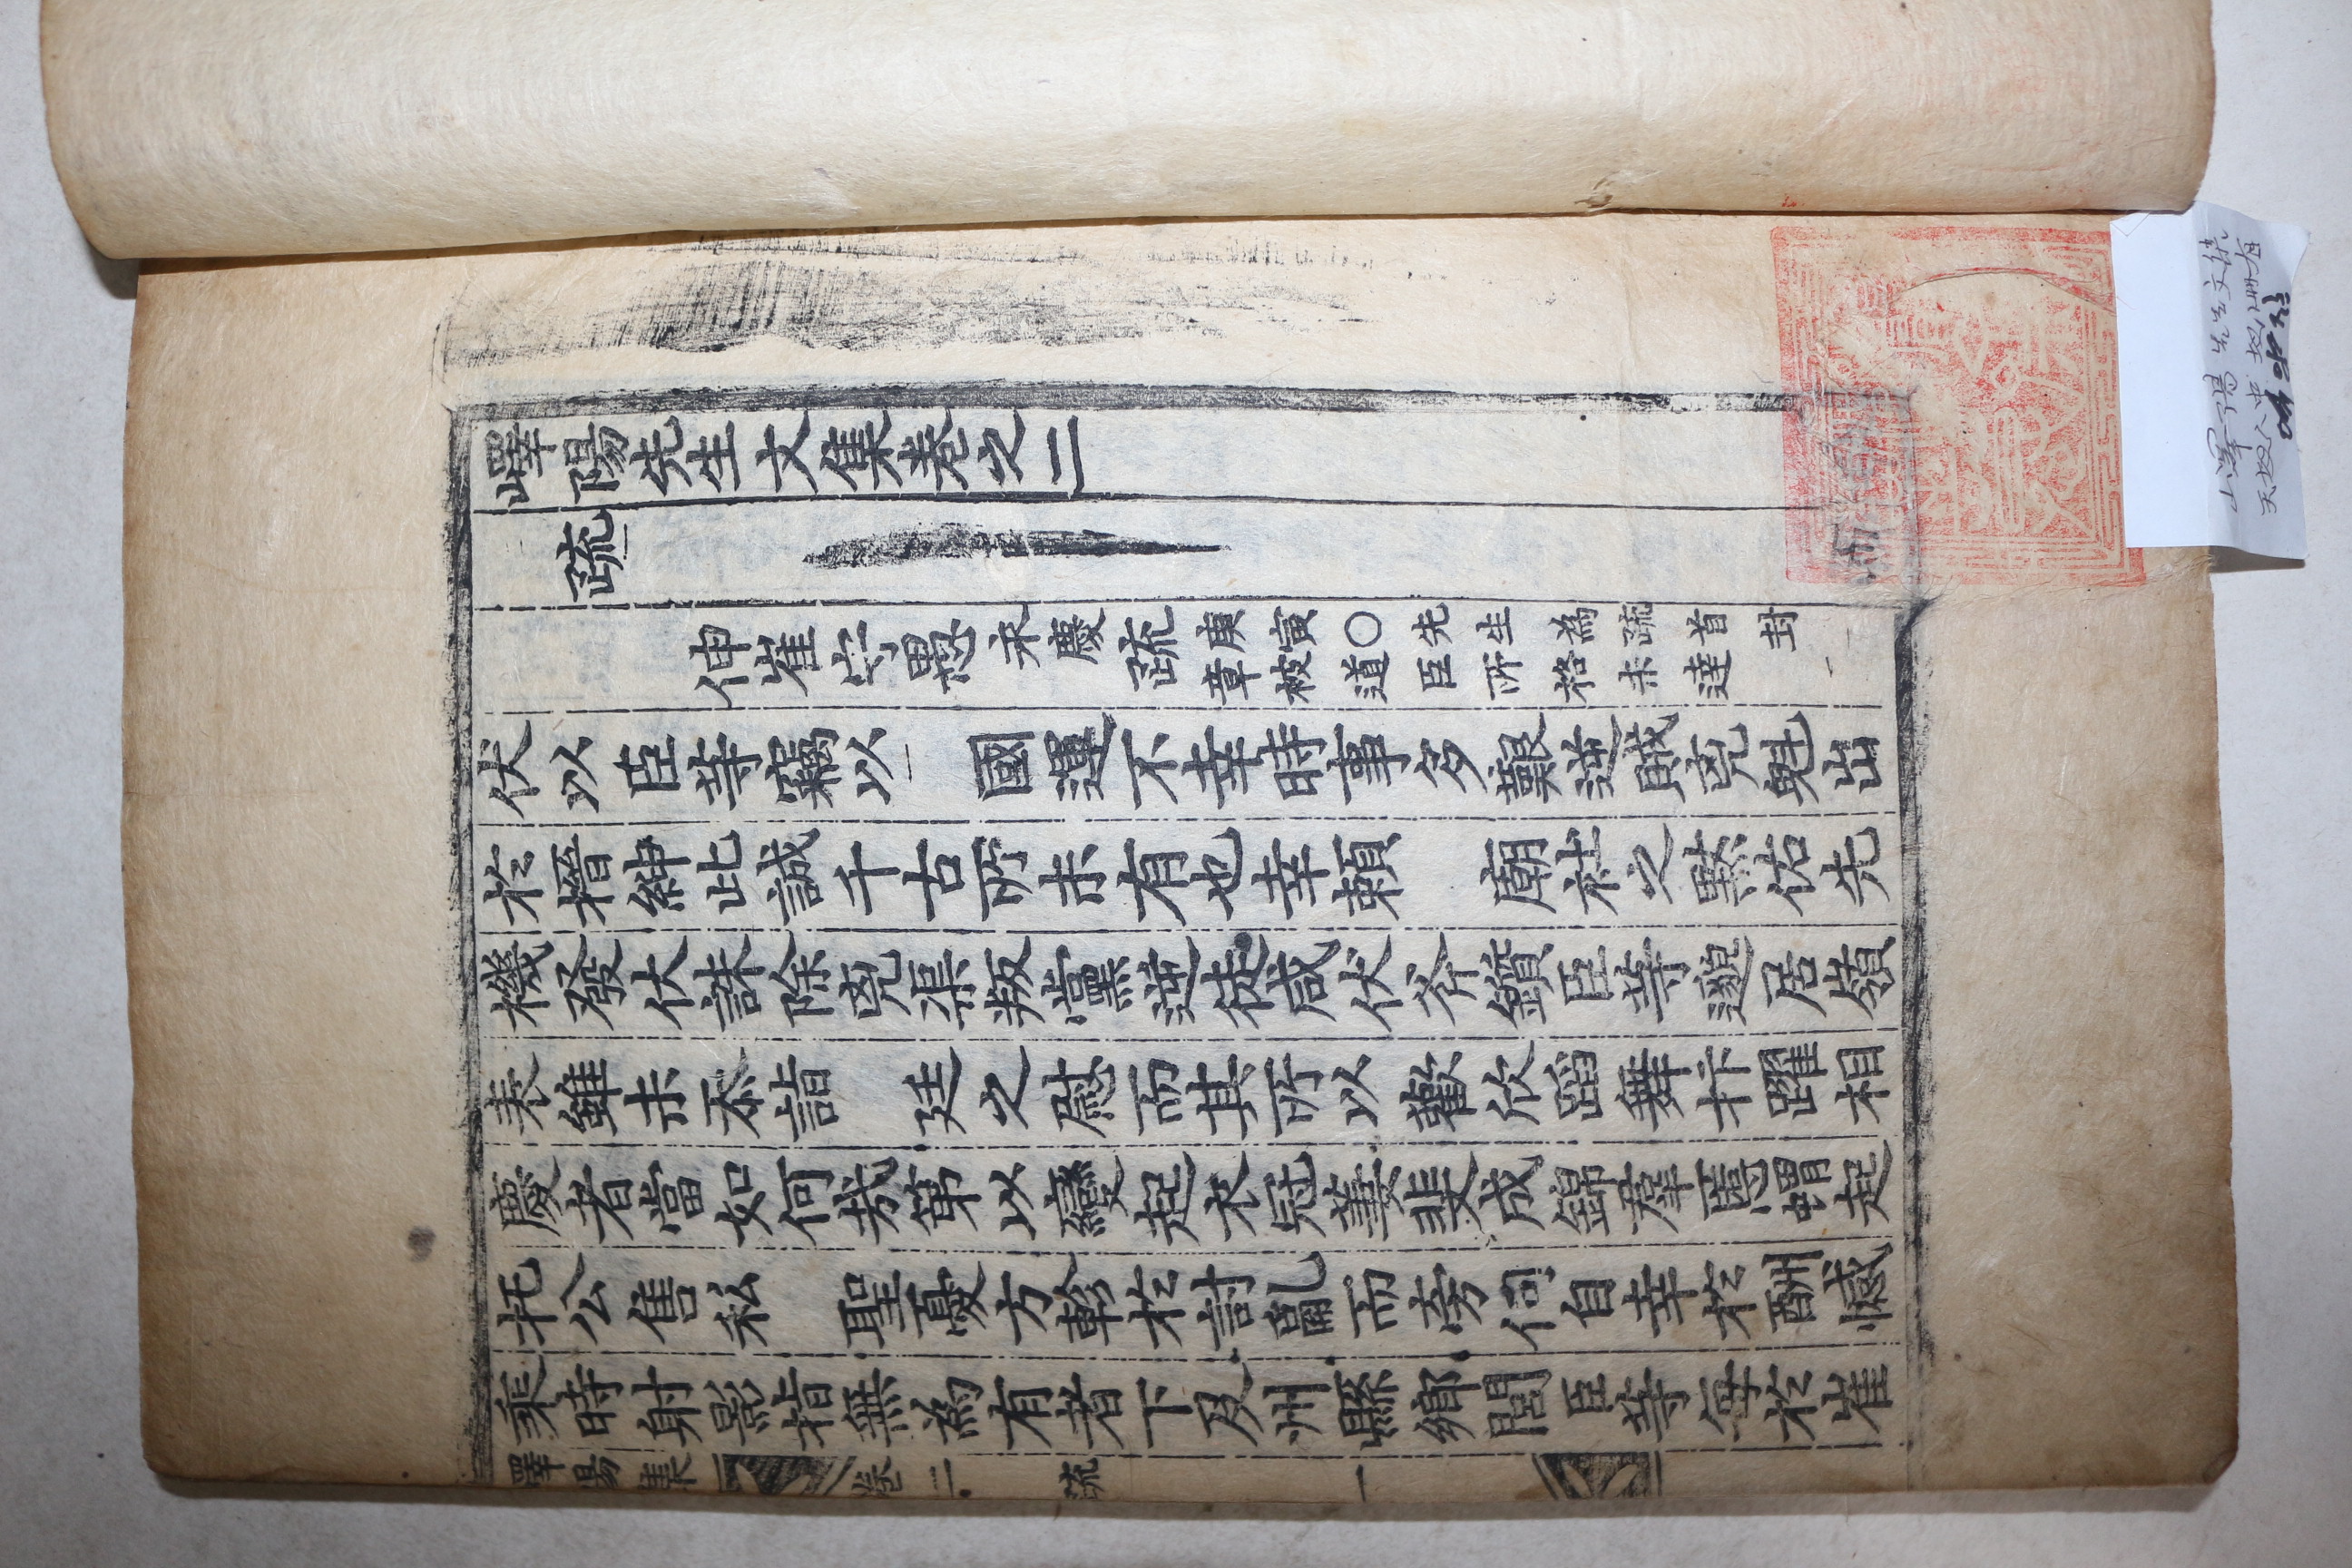 嶧陽先生文集卷之二
疏
伸崔守愚永慶疏庚寅○先生為疏首封章被道臣所格未達
伏以臣等竊以 國運不幸時事多艱逆賊兇魁出
於搢紳此誠千古所未有也幸賴 廟社之默佑先
機發伏誅除兇渠叛黨逆徒咸伏斧鑕臣等邈居嶺
表雖未忝詣 廷之慰而其所以歡欣蹈舞忭躍相
慶者當如何哉第以釁起衣冠萋斐成錦羣慝蝟起
托公售私 聖憂方軫於討亂而旁伺自幸於酬憾
乘時射影指無為有者下及州縣鄉閭臣等每於崔
嶧陽集 卷二 疏 一